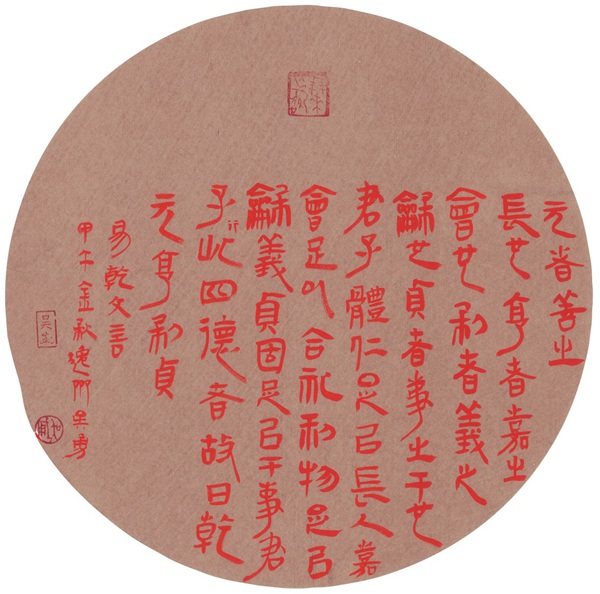 元者善之
長也亨者嘉之
會也利者義之
龢也貞者事之干也
君子體仁足㠯長人嘉
會足以合礼利物足㠯
龢義貞固足㠯干事君
子行此四德者故曰乾
元亨利貞
易乾文言
甲午金秋吴勇
吴生